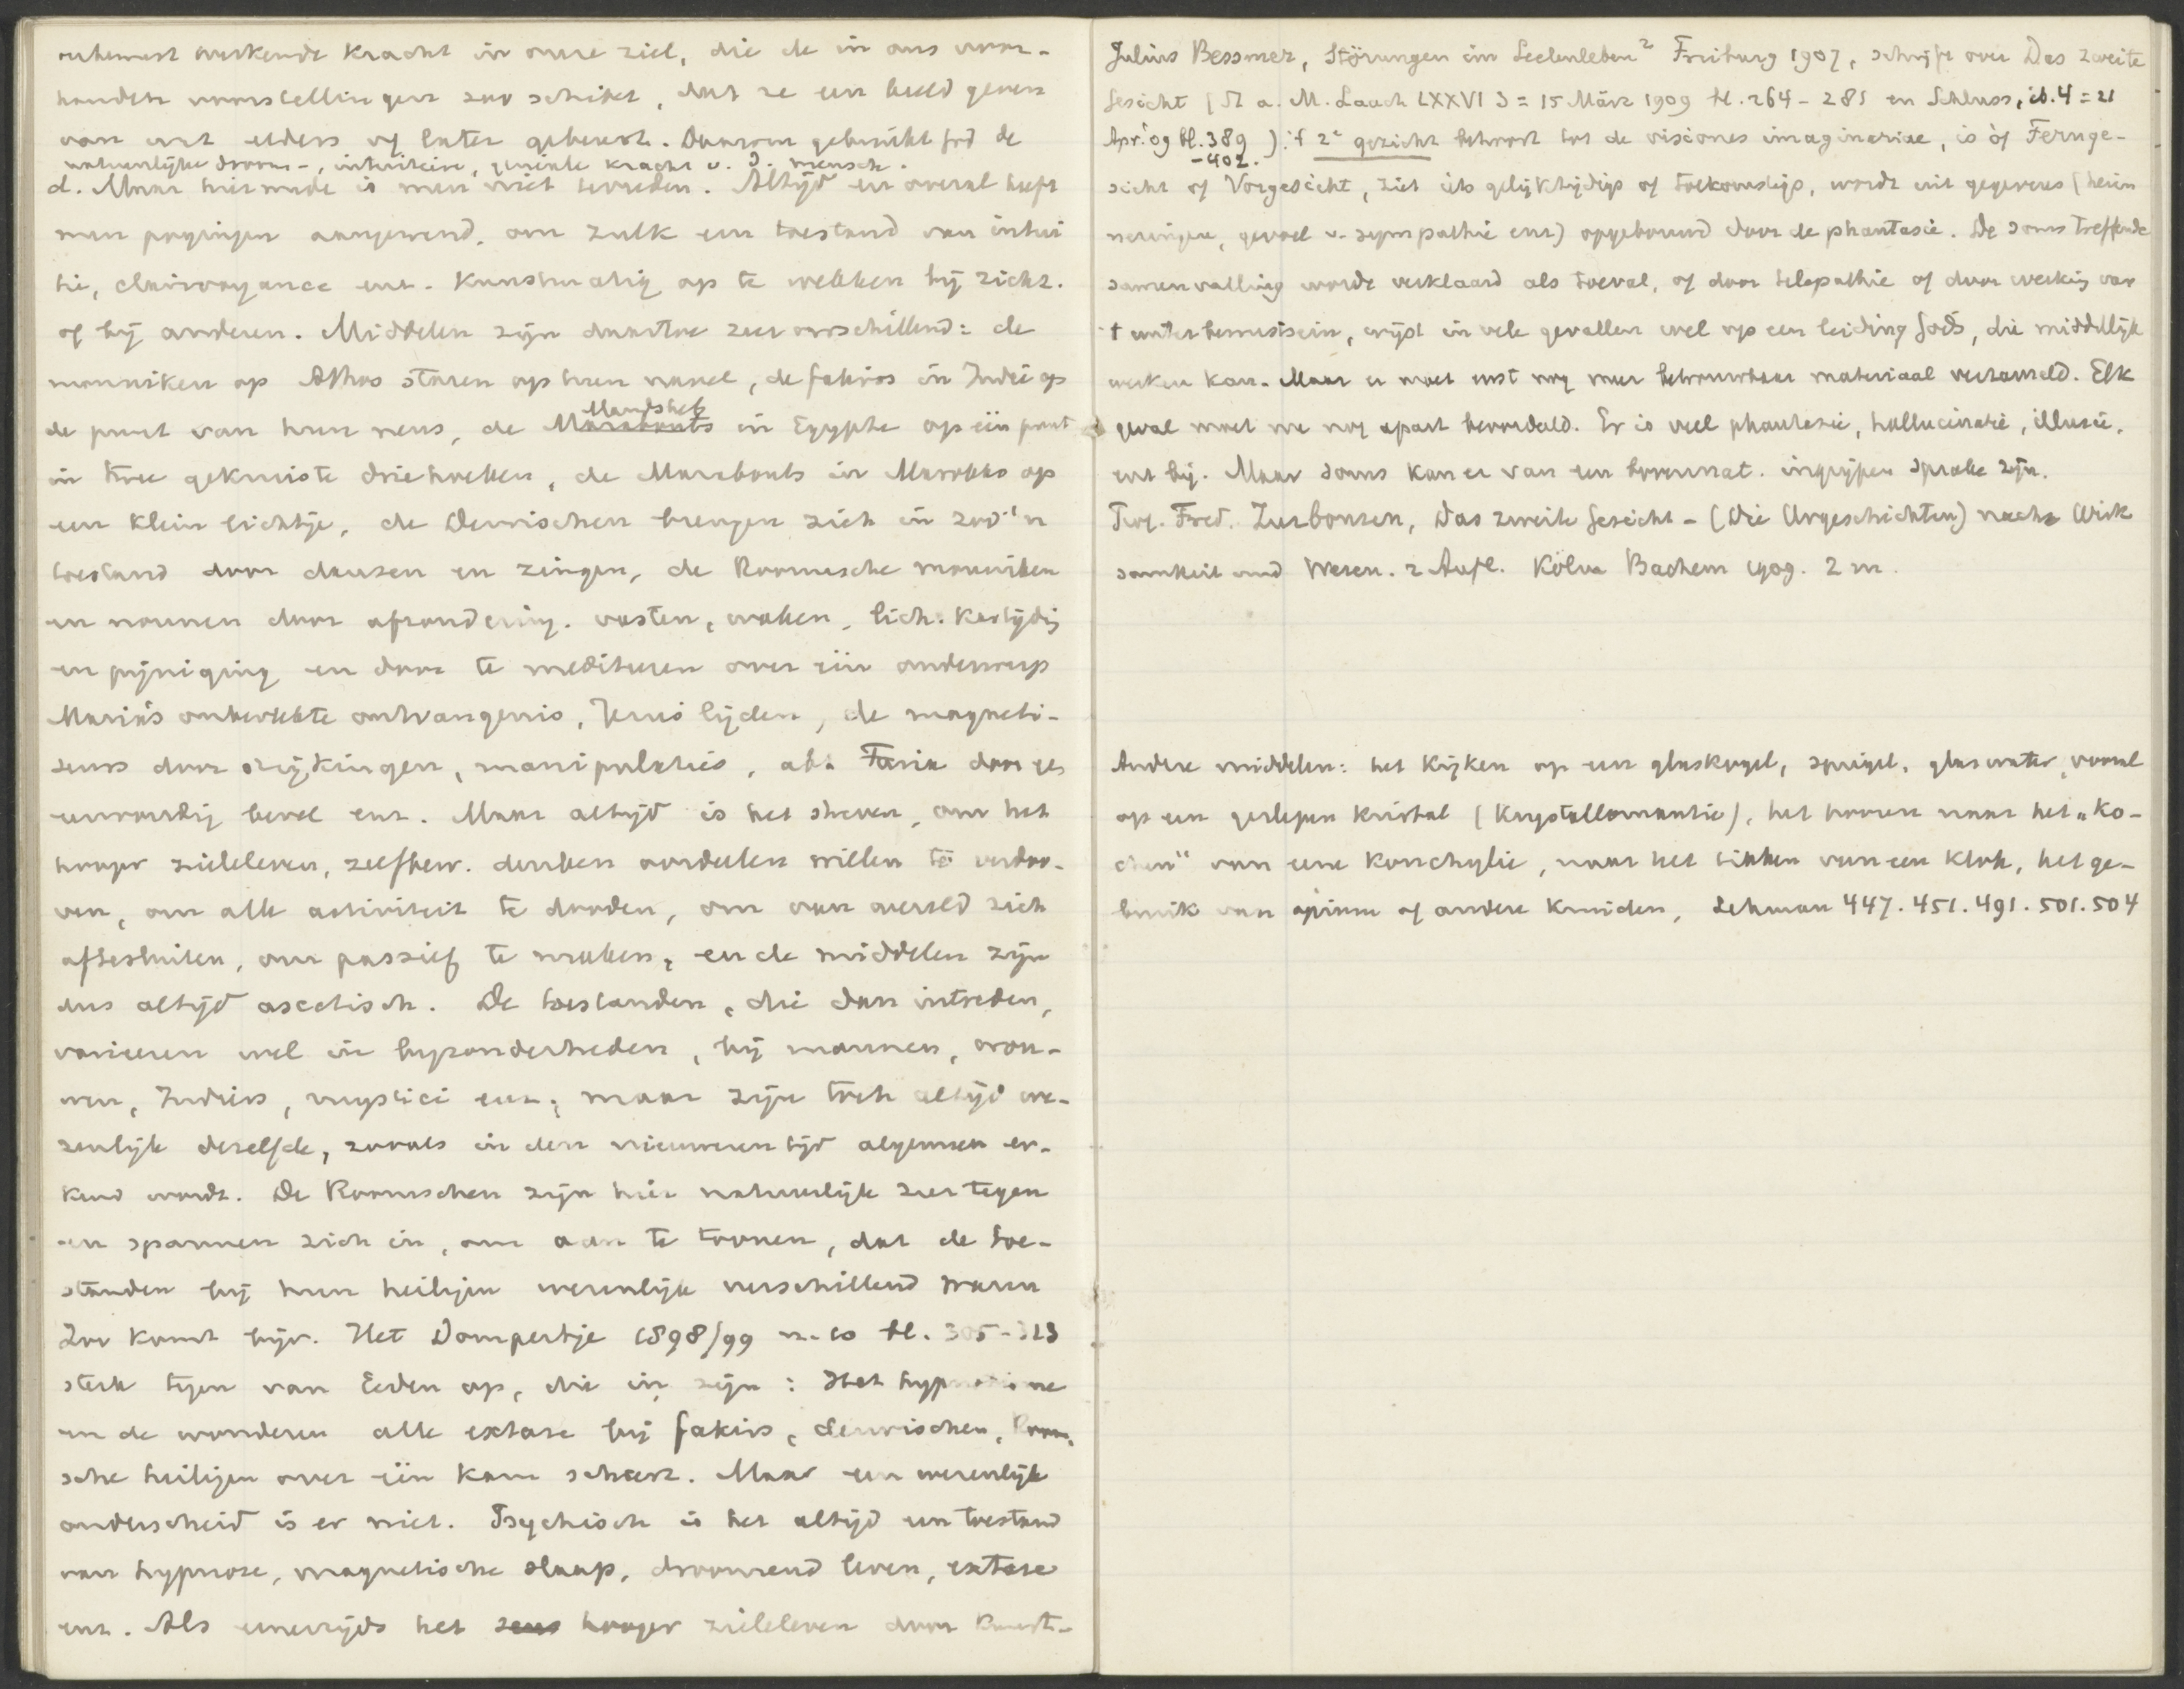 onbewust werkende kracht in onze ziel, die de in ons voor-
handen voorstellingen zoo schikt, dat ze een beeld geven
van wat elders of later gebeurt. Daarom gebruikt God de
natuurlijke droom-, intuitieve, geniale kracht v. d. mensch.
d. Maar hiermede is men niet tevreden. Altijd en overal heeft
men pogingen aangewend, om zulk een toestand van intui
tie, clairvoyance enz. kunstmatig op te wekken bij zichz.
of bij anderen. Middelen zijn daartoe zeer verschillend: de
monniken op Athos staren op hun navel, de fakirs in Indië op
de punt van hun neus, de Mandsheb in Egypte op één punt
in twee gekruiste driehoeken, de Marabouts in Marokko op
een klein lichtje, de Derwischen brengen zich in zoo'n
toestand door dansen en zingen, de Roomsche monniken
en nonnen door afzondering, vasten, waken, lich. kastijdig
en pijniging en door te mediteeren over één onderwerp
Maria's onbevlekte ontvangenis, Jezus lijden, de magneti-
seurs door strijkingen, manipulaties, abt Faria door een
eenvoudig bevel enz. Maar altijd is het streven, om het
hooger zieleleven, zelfbew. denken oordeelen willen te verdoo-
ven, om alle activiteit te dooden, om van wereld zich
aftesluiten, om passief te maken, en de middelen zijn
dus altijd ascetisch. De toestanden, die dan intreden,
varieeren wel in bijzonderheden, bij mannen, vrou-
wen, Indiërs, mystici enz., maar zijn toch altijd we-
zenlijk dezelfde, zooals in den nieuweren tijd algemeen er-
kend wordt. De Roomschen zijn hier natuurlijk zeer tegen
en spannen zich in, om aan te toonen, dat de toe-
standen bij hun heiligen wezenlijk verschillend waren
Zoo komt bijv. Het Dompertje 1898/99 n. 10 bl. 305-313
sterk tegen van Eeden op, die in zijn: Het hypnotisme
en de wonderen alle extase bij fakirs, derwischen, Room-
sche heiligen over één kam scheert. Maar een wezenlijk
onderscheid is er niet. Psychisch is het altijd een toestand
van hypnose, magnetische slaap, droomend leven, extase
enz. Als eenerzijds het hooger zieleleven door kunst-
Julius Bessmer, Störungen im Seelenleben² Freiburg 1907, schrijft over Das zweite
Gesicht (St a. M. Laach LXXVI 3 = 15 März 1909 bl. 264-281 en Schluss, ib. 4 = 21
Apr. '09 bl. 389-402.). 't 2e gezicht behoort tot de visiones imaginariae, is òf Fernge-
sicht of Vorgesicht, ziet iets gelijktijdigs of toekomstigs, wordt uit gegevens (herin
neringen, gevoel v. sympathie enz) opgebouwd door de phantasie. De soms treffende
samenvalling wordt verklaard als toeval, of door telepathie of door werking van
't unterbewustsein, wijst in vele gevallen wel op een leiding Gods, die middellijk
werken kan. Maar er moet eerst nog meer betrouwbaar materiaal verzameld. Elk
geval moet nog apart beoordeeld. Er is veel phantasie, hallucinatie, illusie,
enz bij. Maar soms kan er van een bovennat. ingrijpen sprake zijn.
Prof. Fred. Zurbonsen, Das zweite Gesicht - (Die Vorgeschichten) nach Wirk
samkeit und Wesen. 2 Aufl. Köln Bachem 1909. 2 m.
Andere middelen: het kijken op een glaskogel, spiegel, glas water, vooral
op een geslepen kristal (Krystallomantie), het hooren naar het „Ko-
chen" van eene konchylie, naar het tikken van een klok, het ge-
bruik van opium of andere kruiden, Lehman 447. 451. 491. 501. 504